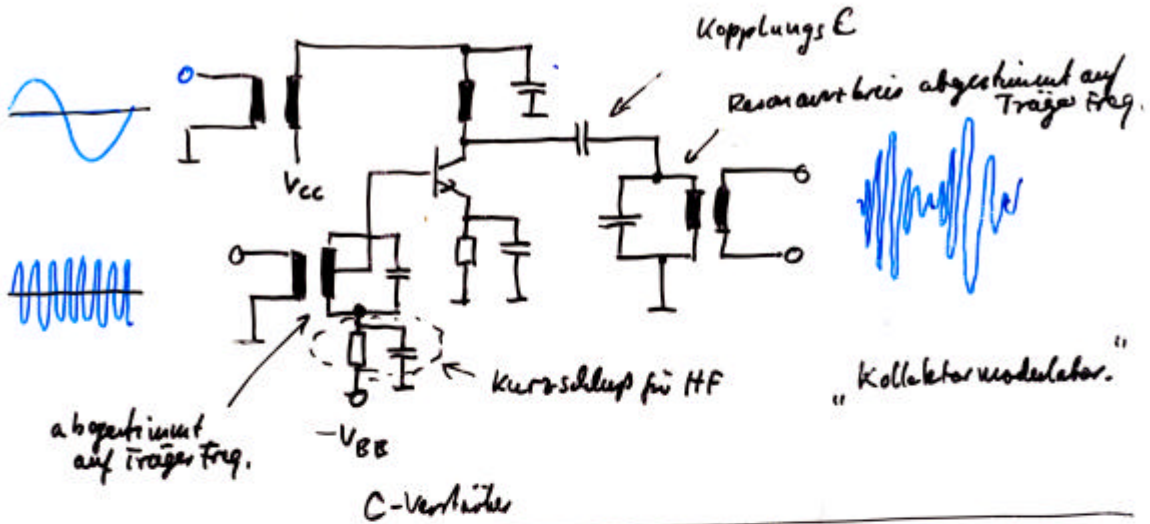 Kopplungs C
Resonanzkreis abgestimmt auf
Träger Freq.
Vcc
Kurzschluß für HF
„Kollektormodulator."
abgestimmt
auf Träger Freq.
-VBB
C-Verstärker